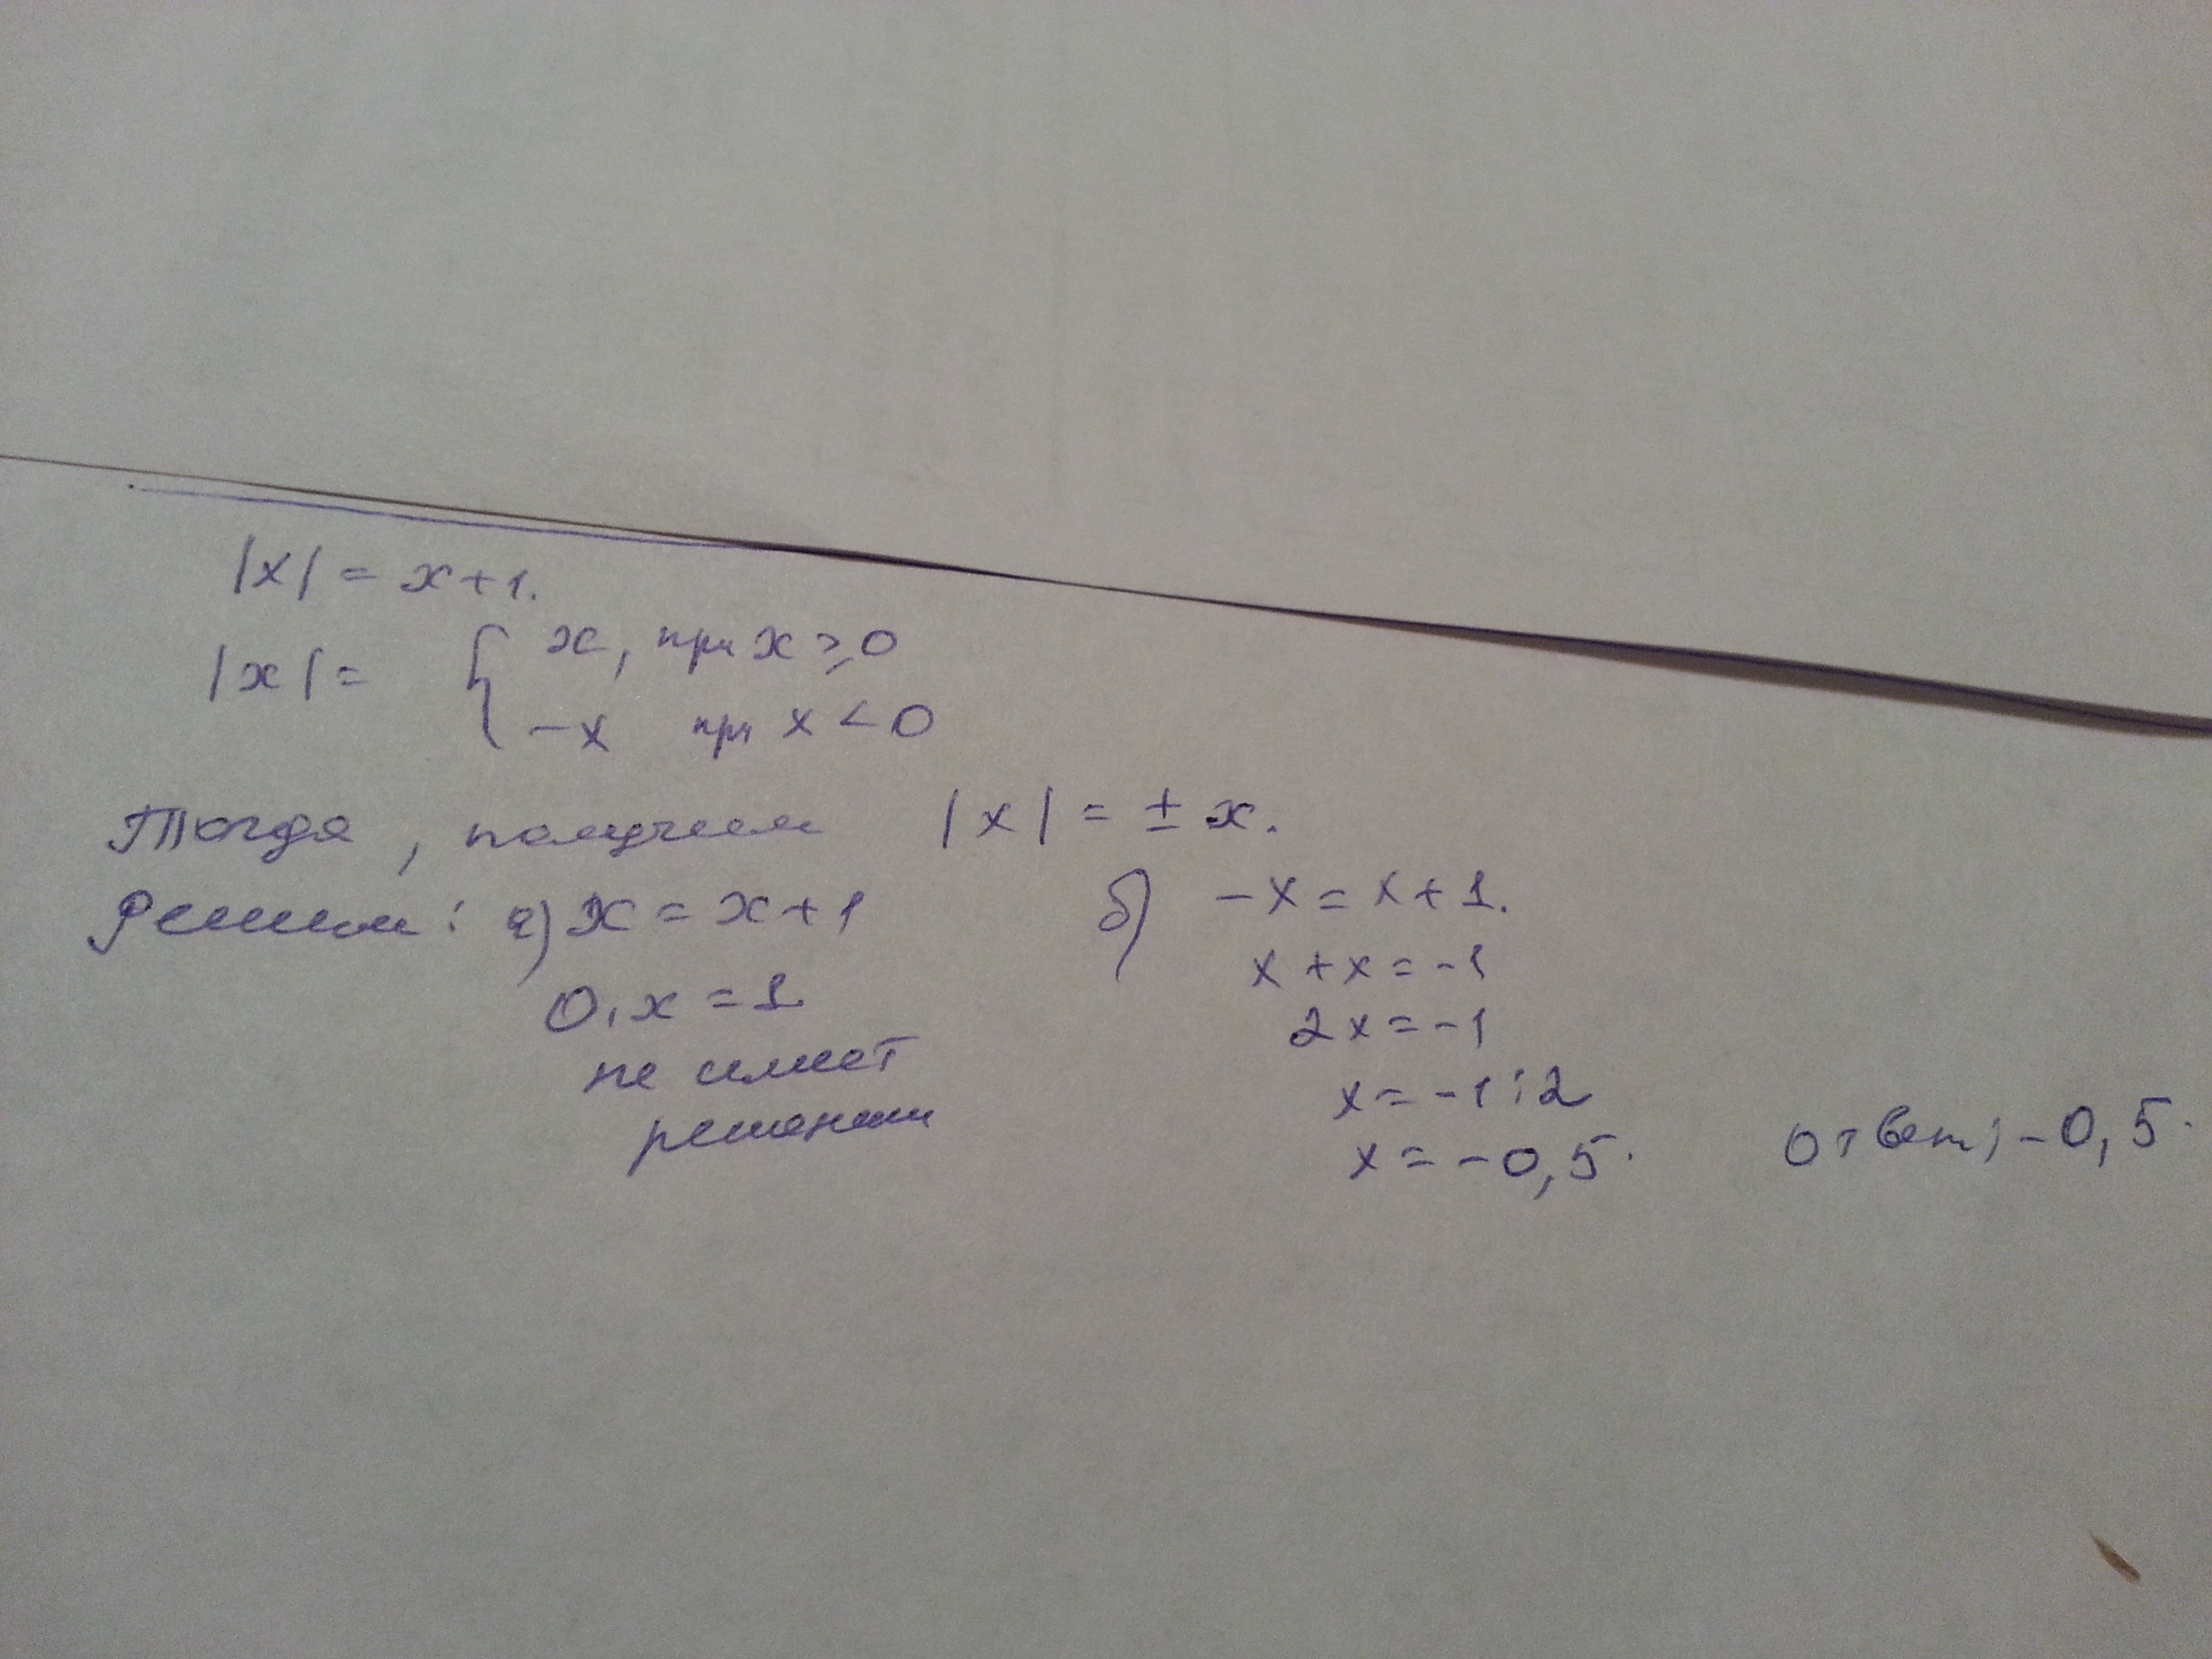 |x| = x+1.
|x| = { x, при x ≥ 0
-x при x < 0
Тогда, получаем |x| = ± x.
Решим: а) x = x+1
0·x = 1
не имеет
решения
б) -x = x+1.
x+x = -1
2x = -1
x = -1:2
x = -0,5.
Ответ: -0,5.